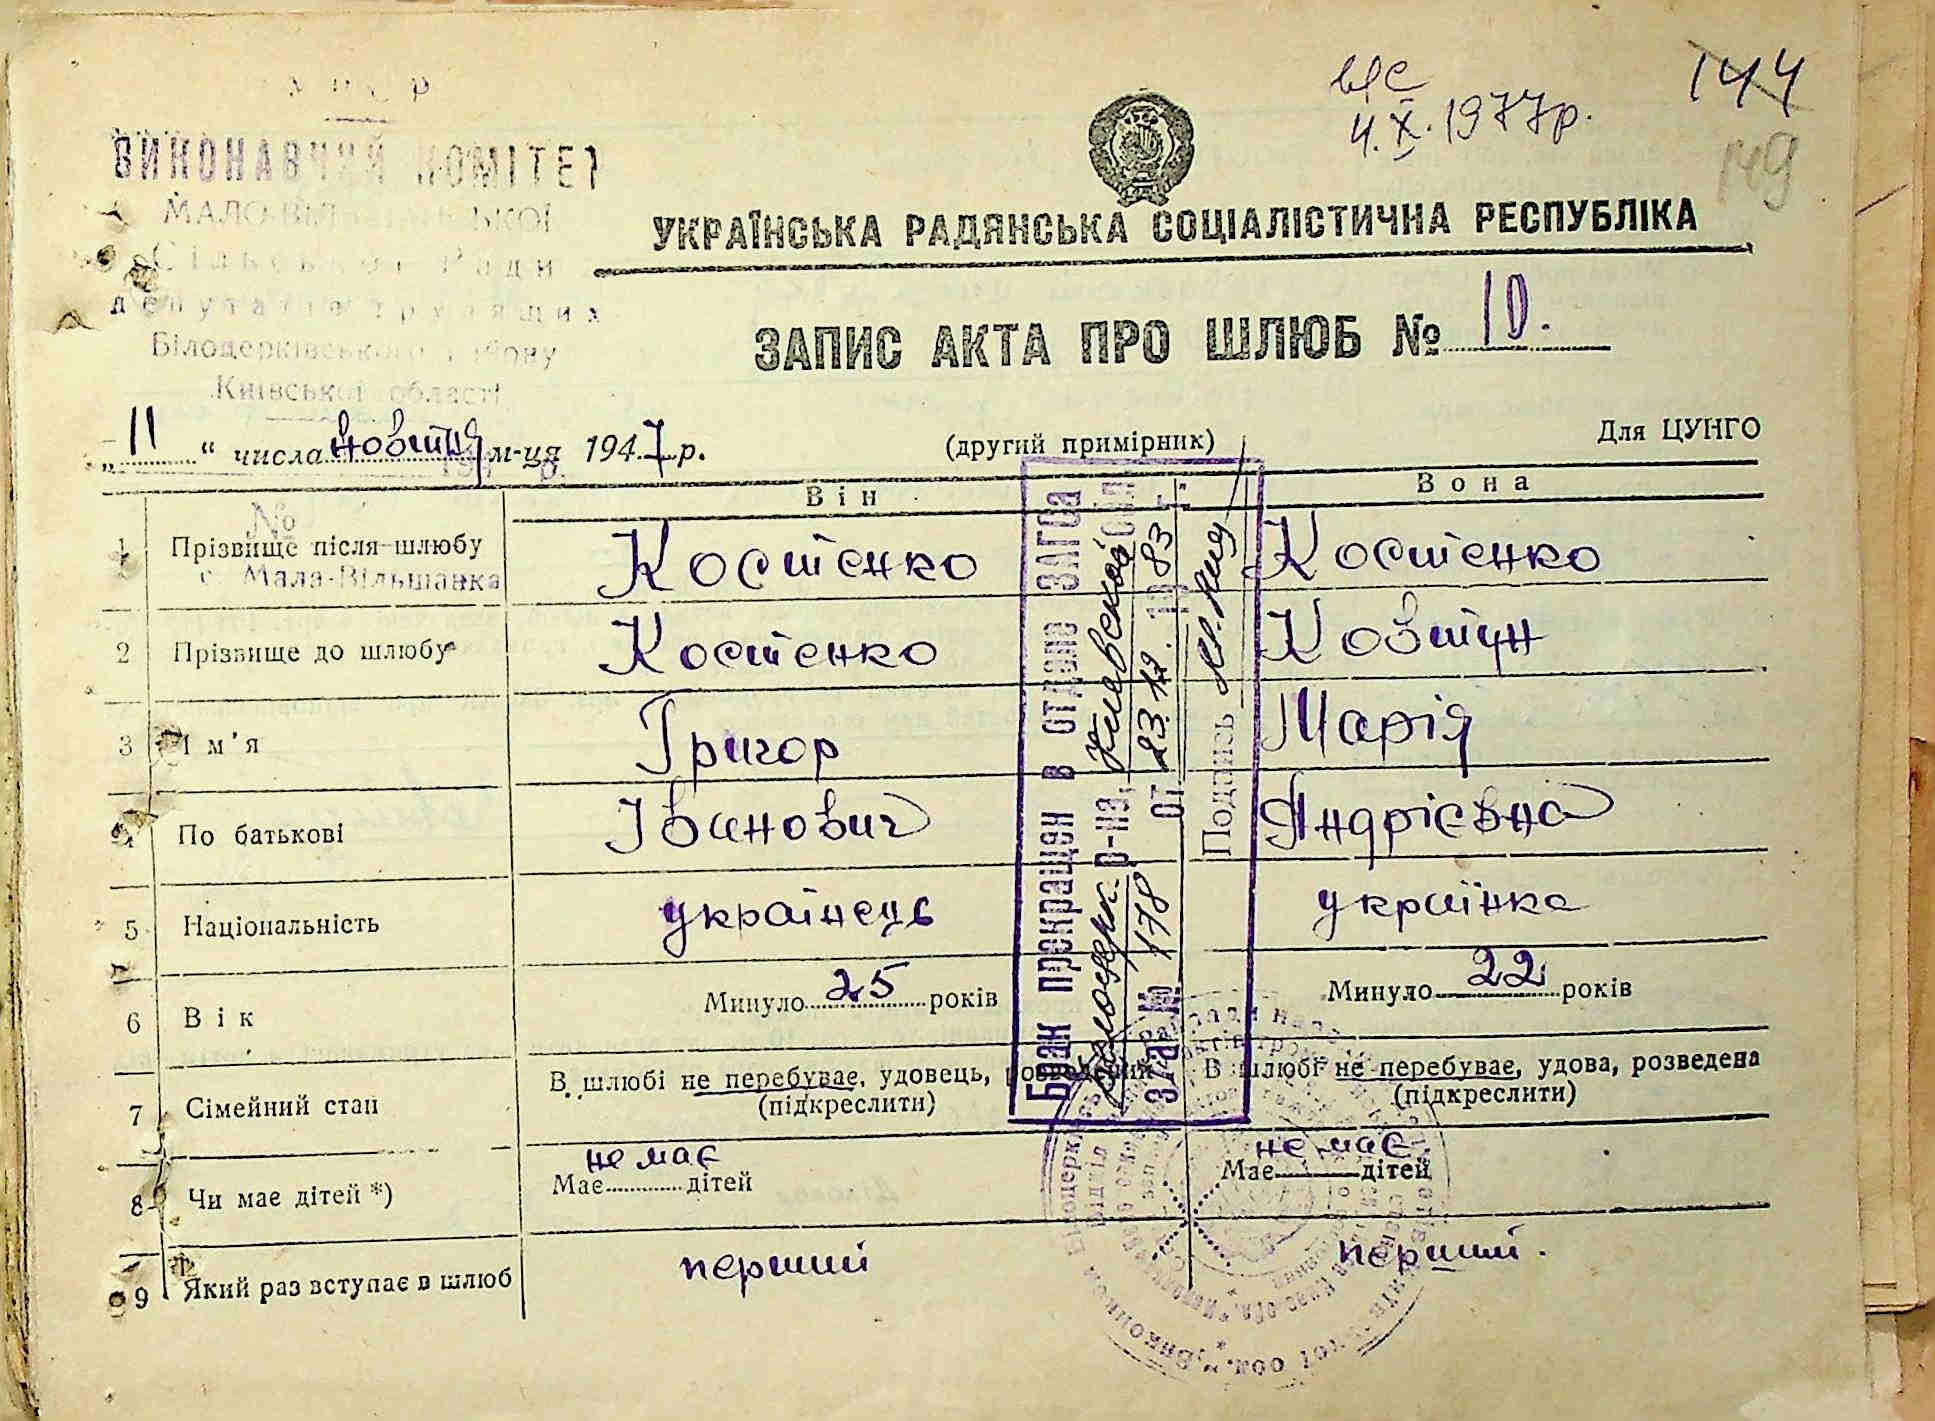 вдс
4.X.1977р.
144
149
УРСР
ВИКОНАВЧИЙ КОМІТЕТ
МАЛО-ВІЛЬШАНСЬКОЇ
Сільської Ради
депутатів трудящих
Білоцерківського району
Київської області
УКРАЇНСЬКА РАДЯНСЬКА СОЦІАЛІСТИЧНА РЕСПУБЛІКА
ЗАПИС АКТА ПРО ШЛЮБ № 10.
„11“ числа новтня м-ця 1947 р.
(другий примірник)
Для ЦУНГО
№
с. Мала-Вільшанка
Він
Вона
1 Прізвище після шлюбу Костенко Костенко
2 Прізвище до шлюбу Костенко Ковтун
3 Ім'я Григор Марія
4 По батькові Іванович Андрієвна
5 Національність українець українка
6 Вік Минуло 25 років Минуло 22 років
7 Сімейний стан В шлюбі не перебуває, удовець, розведений В шлюбі не перебуває, удова, розведена
(підкреслити) (підкреслити)
8 Чи має дітей *) Має не має дітей Має не має дітей
9 Який раз вступає в шлюб перший перший.
Брак прекращен в отделе ЗАГСа
Белоцерк. р-на, Киевской обл.
З/а № 178 от 23.12.1983 г.
Подпись